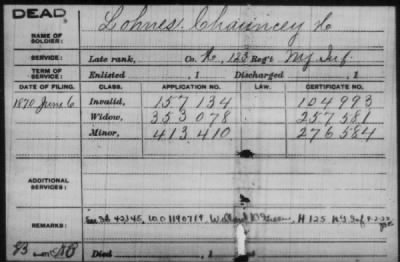 DEAD
NAME OF SOLDIER: Lohnes, Chauncey H
SERVICE: Late rank, Co. H, 125 Reg't N.Y. Inf.
TERM OF SERVICE: Enlisted , 1 Discharged , 1
DATE OF FILING. CLASS. APPLICATION NO. LAW. CERTIFICATE NO.
1870 June 6 Invalid, 157 134 104 993
Widow, 353 078 257 581
Minor, 413 410 276 584
ADDITIONAL SERVICES:
REMARKS: See 3d 42145, W.O. 1190719, H 125 N.Y. Inf
Died , 1